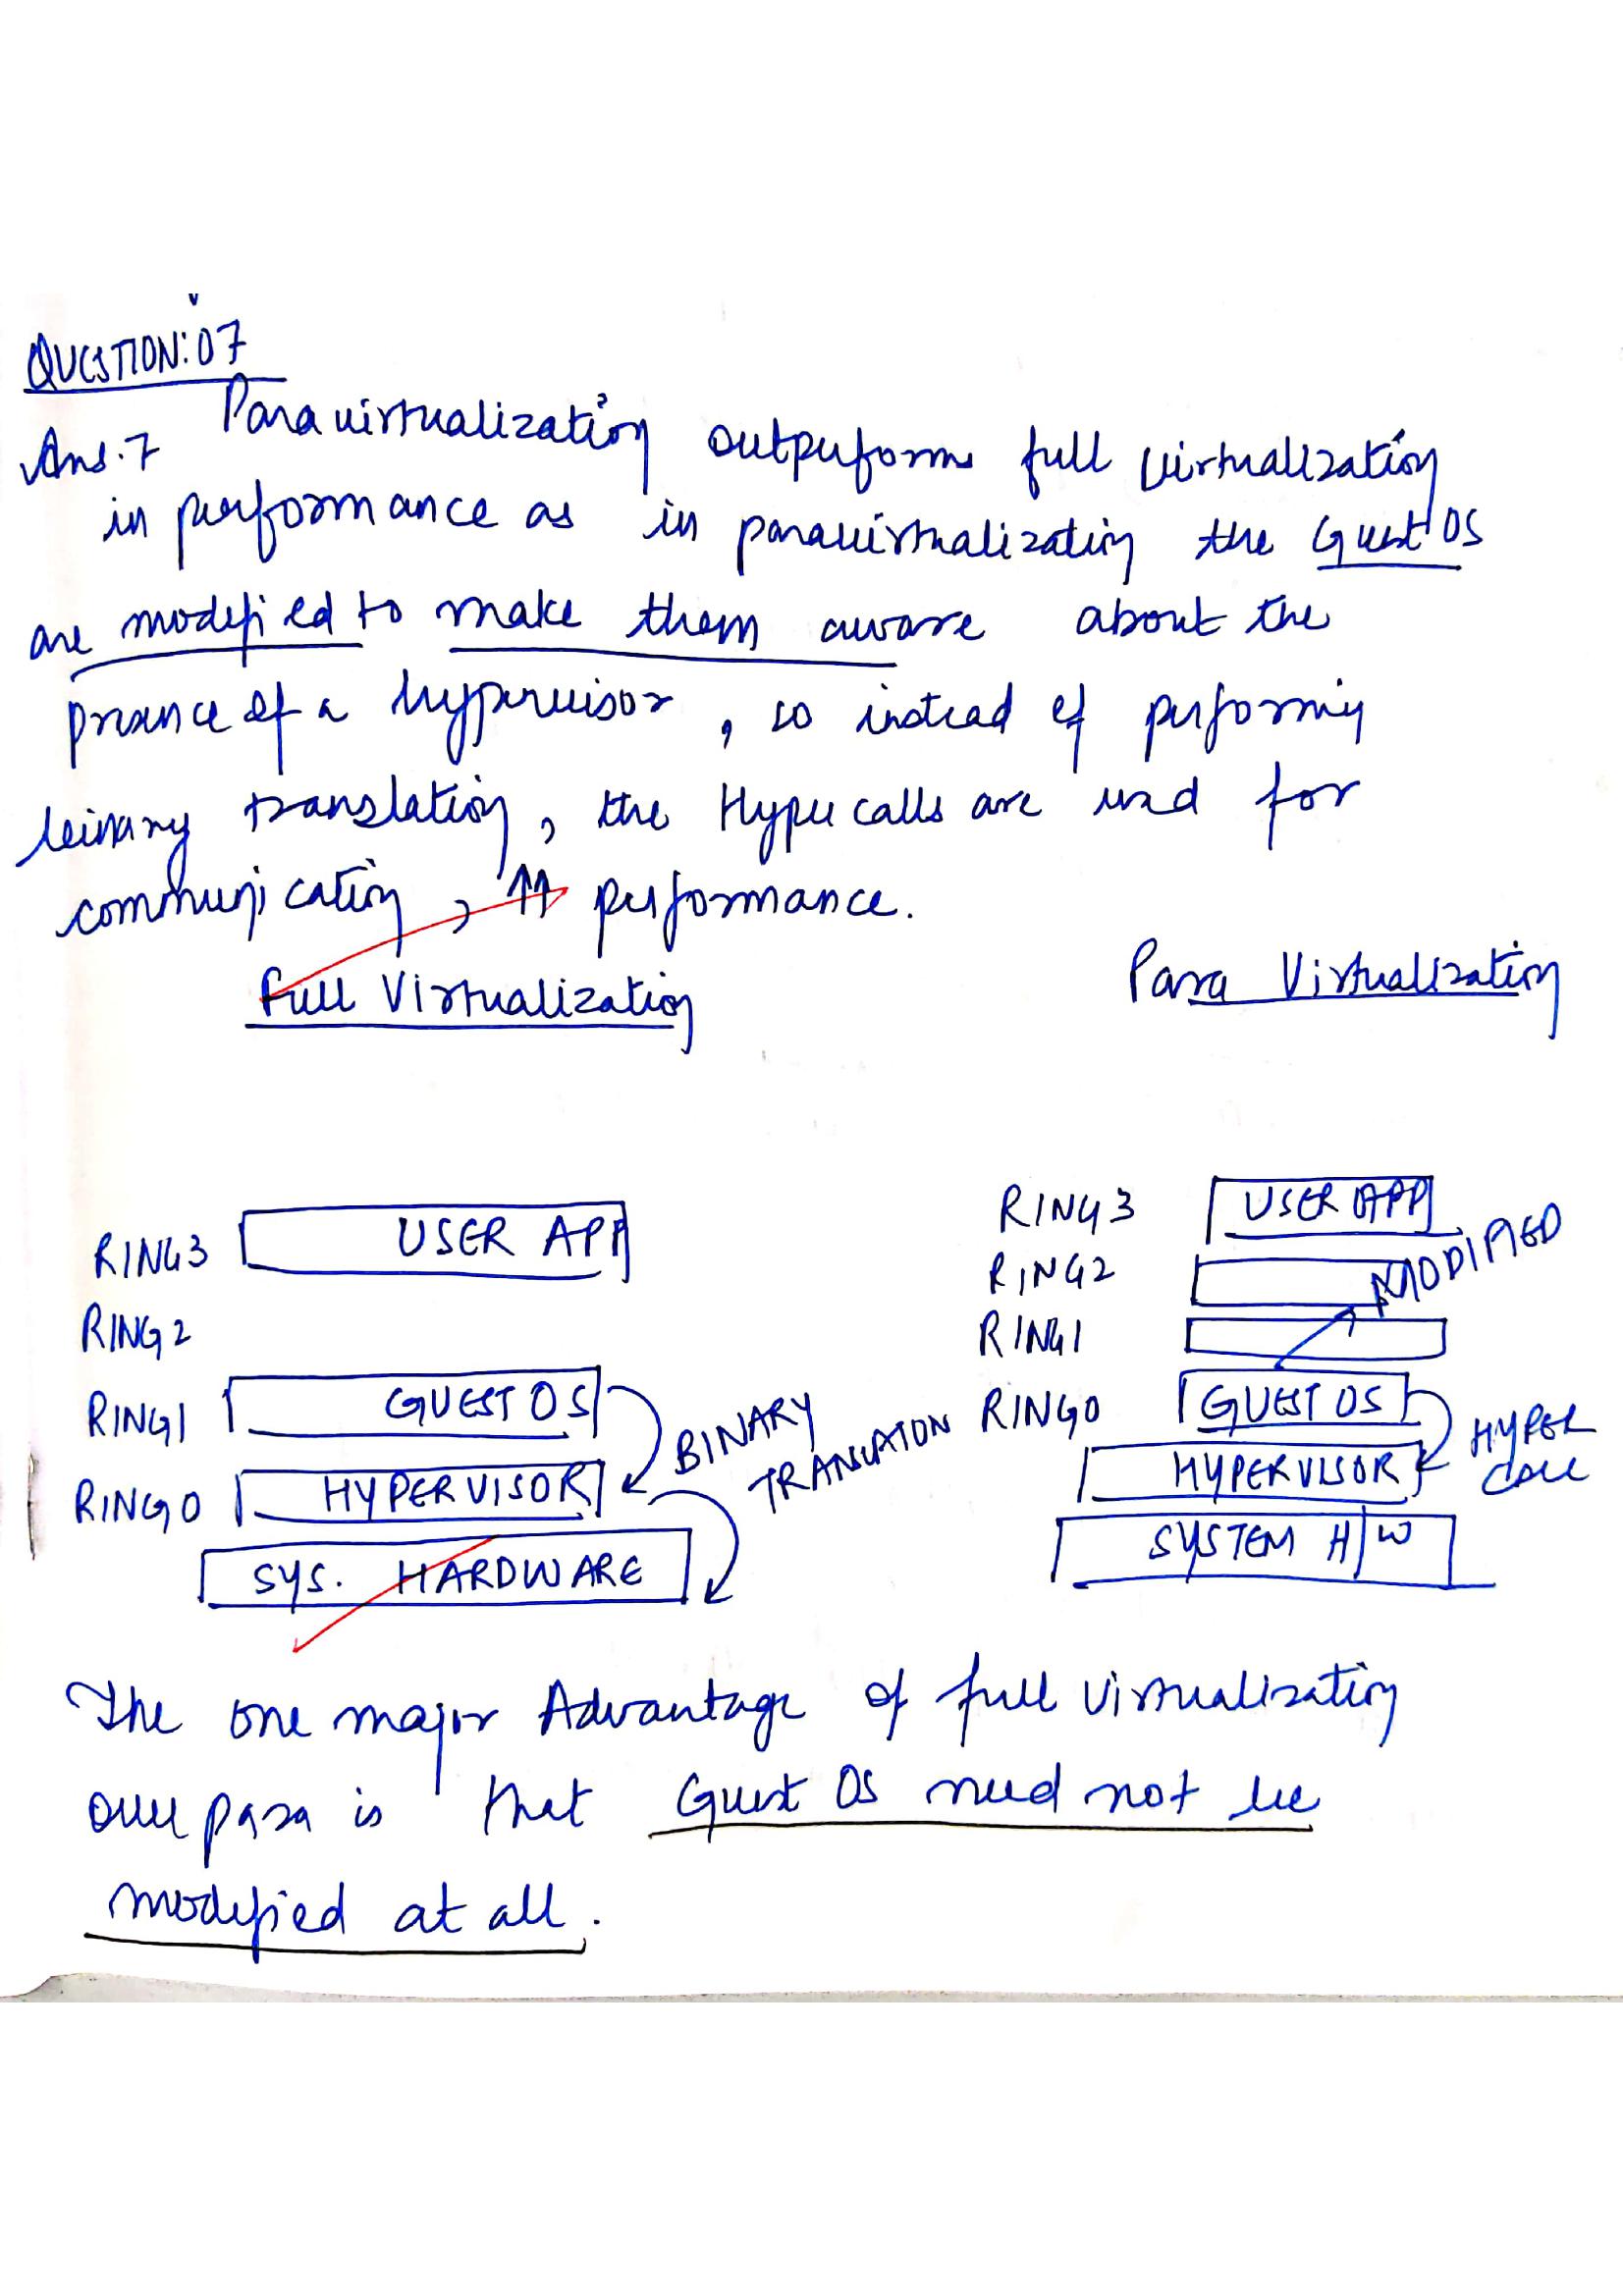 QUESTION: 07
Ans. 7 Paravirtualization outperforms full virtualization
in performance as in paravirtualization the Guest OS
are modified to make them aware about the
presence of a hypervisor, so instead of performing
binary translation, the Hyper calls are used for
communication, ↑↑ performance.
Full Virtualization
Para Virtualization
RING 3 USER APP
RING 2
RING 1 GUEST OS
RING 0 HYPERVISOR
SYS. HARDWARE
BINARY
TRANSLATION
RING 3 USER APP
RING 2
MODIFIED
RING 1
RING 0 GUEST OS
HYPERVISOR
HYPER
CALL
SYSTEM H/W
The one major Advantage of full virtualization
over para is that Guest OS need not be
modified at all.